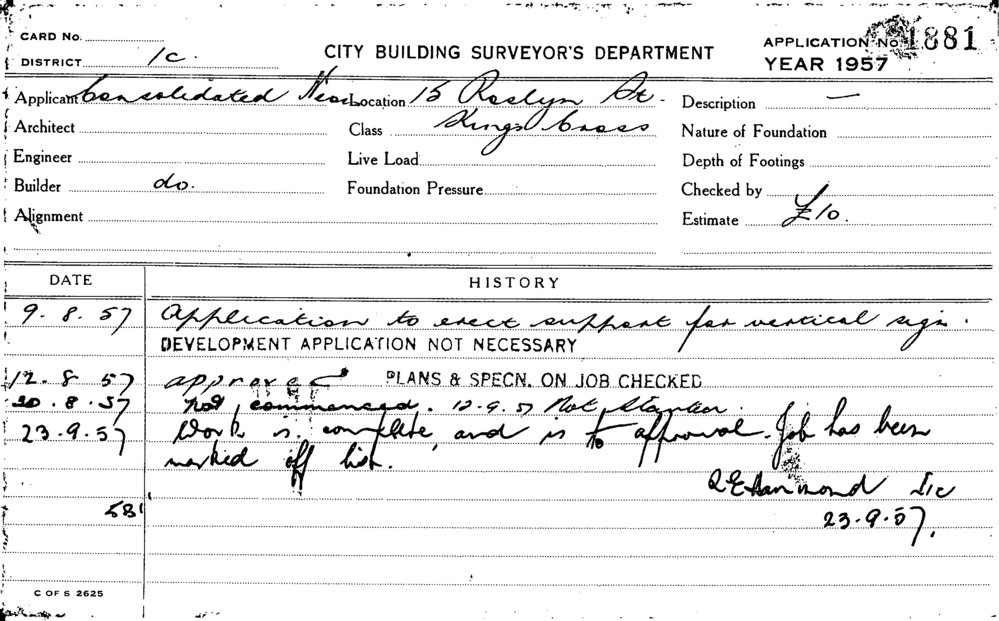 CARD No.
APPLICATION No 1881
DISTRICT 1c.
CITY BUILDING SURVEYOR'S DEPARTMENT
YEAR 1957
Applicant Consolidated Neon Location 15 Roslyn St. Description —
Architect Class Kings Cross Nature of Foundation
Engineer Live Load Depth of Footings
Builder do. Foundation Pressure Checked by
Alignment Estimate £10.
DATE HISTORY
9. 8. 57 Application to erect support for vertical sign.
DEVELOPMENT APPLICATION NOT NECESSARY
12. 8 57 approved PLANS & SPECN. ON JOB CHECKED
20. 8. 57 not commenced. 12-9. 57 Not Started
23.9.57 Work is complete, and is to approval. Job has been
marked off list.
Hammond
23.9.57.
C OF S 2625